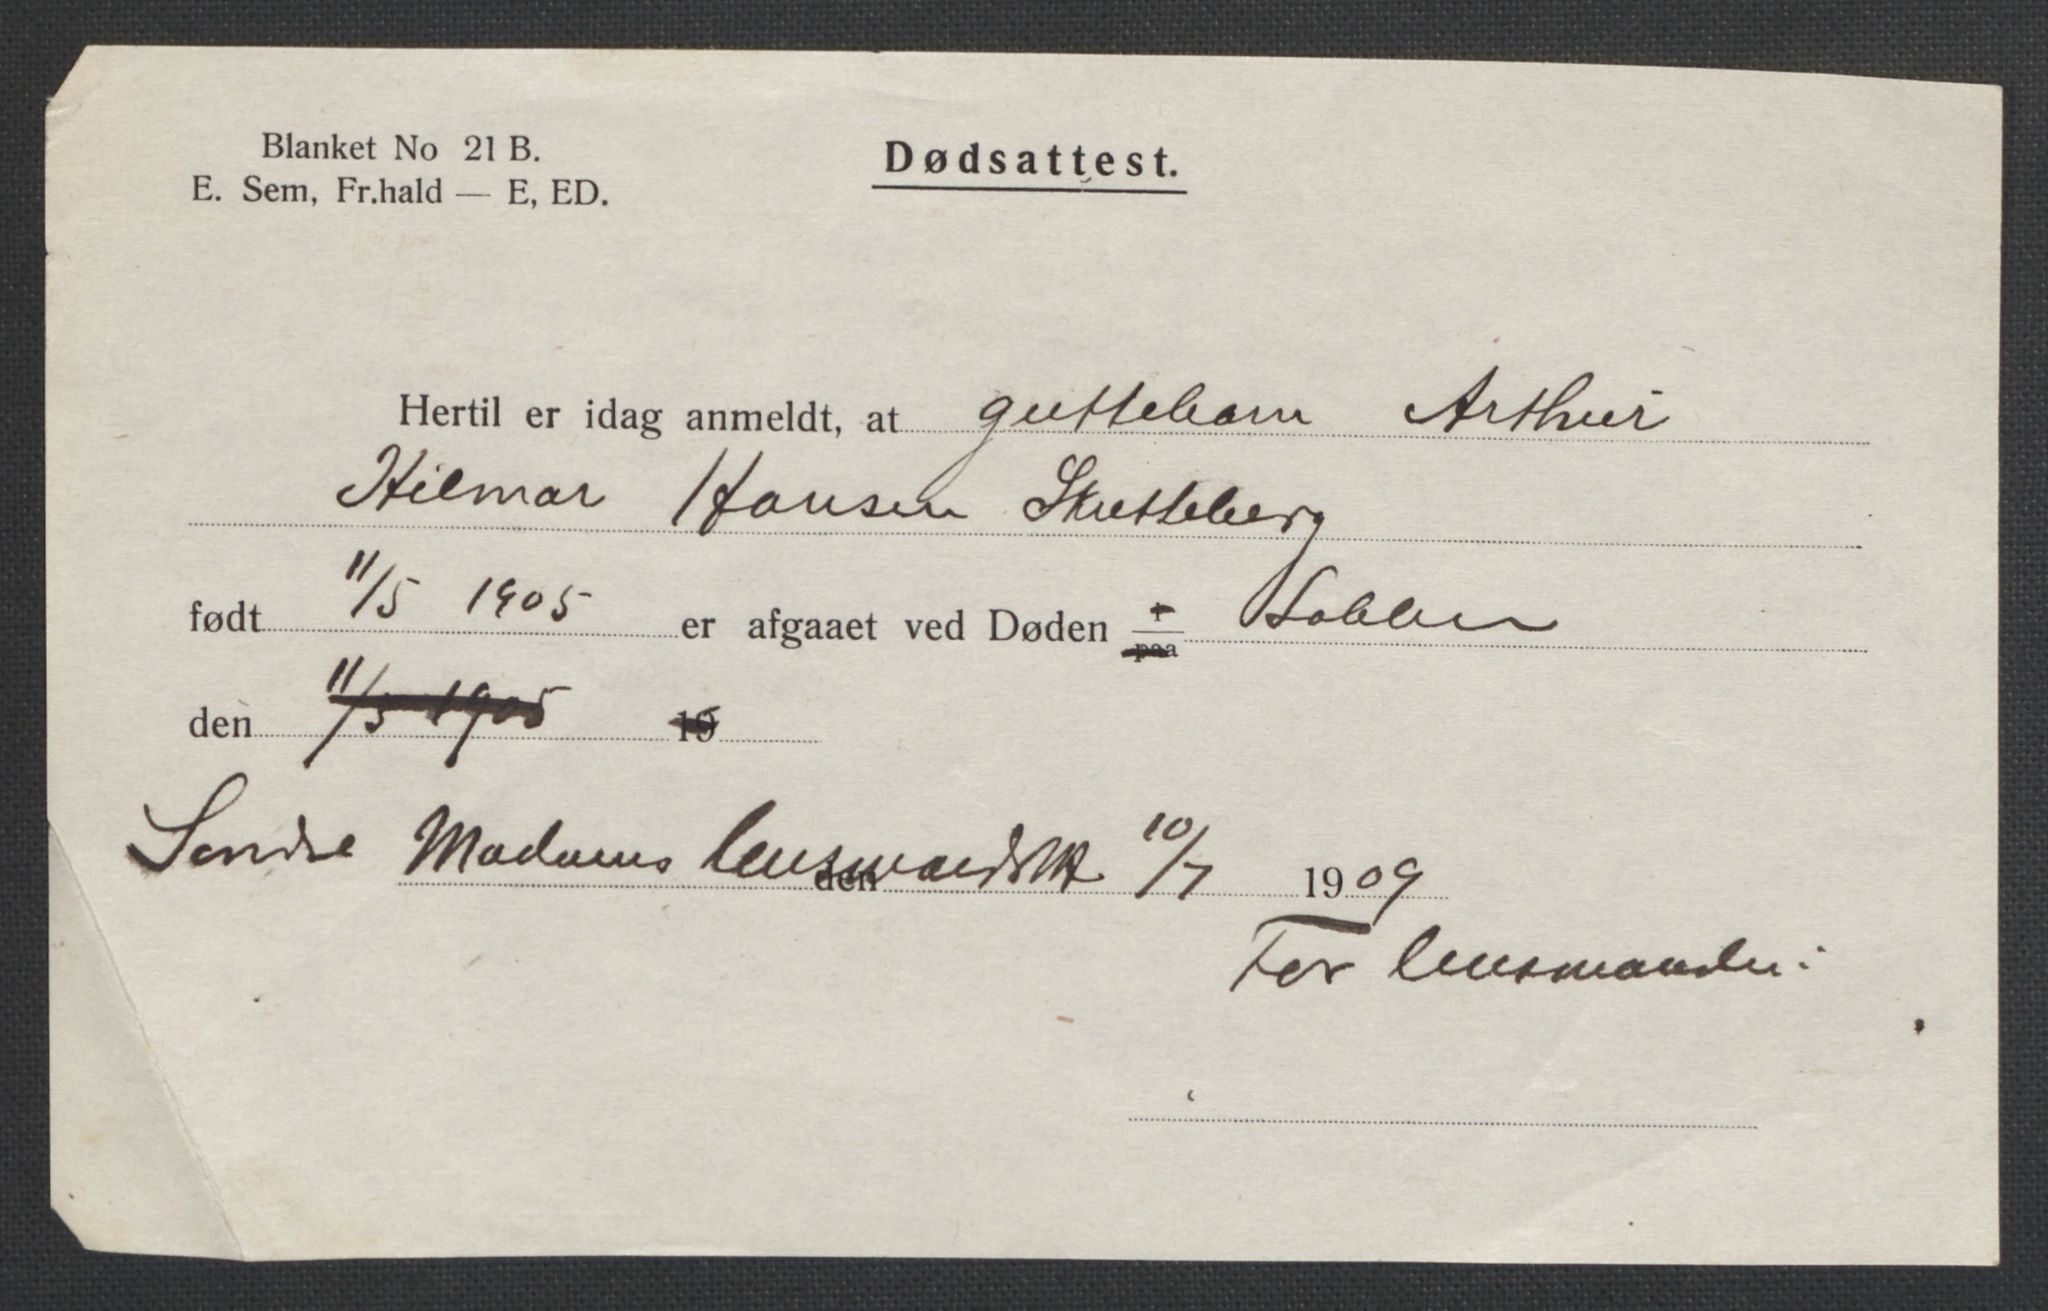 Blanket No 21 B.
E. Sem, Fr.hald — E, ED.
Dødsattest.
Hertil er idag anmeldt, at guttebarn Arthur
Hilmar Hansen Skutteberg
født 11/5 1905 er afgaaet ved Døden i paa
den 11/5 1905 19
Søndre lensmandsk den 10/7 1909
For lensmanden: